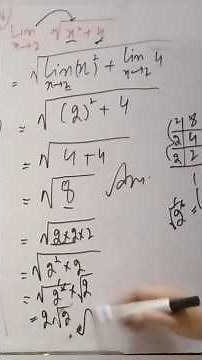 lim x→2 √x² + 4
= √lim x→2 (x)² + lim x→2 4
= √(2)² + 4
= √4+4
= √8 Ans.
= √2×2×2
= √2²×2
= √2² × √2
= 2√2
2 8
2 4
2 2
1